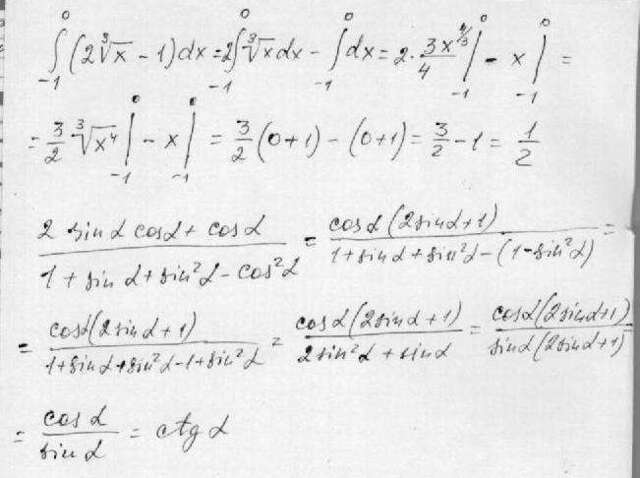 ∫₋₁⁰ (2∛x − 1)dx = 2∫₋₁⁰ ∛x dx − ∫₋₁⁰ dx = 2 · 3x^(4/3)/4 |₋₁⁰ − x |₋₁⁰ =
= 3/2 ∛x⁴ |₋₁⁰ − x |₋₁⁰ = 3/2 (0+1) − (0+1) = 3/2 − 1 = 1/2
(2 sin α cos α + cos α)/(1 + sin α + sin²α − cos²α) = cos α (2sin α + 1)/(1 + sin α + sin²α − (1 − sin²α)) =
= cos α (2sin α + 1)/(1 + sin α + sin²α − 1 + sin²α) = cos α (2sin α + 1)/(2sin²α + sin α) = cos α (2sin α + 1)/(sin α (2sin α + 1))
= cos α/sin α = ctg α